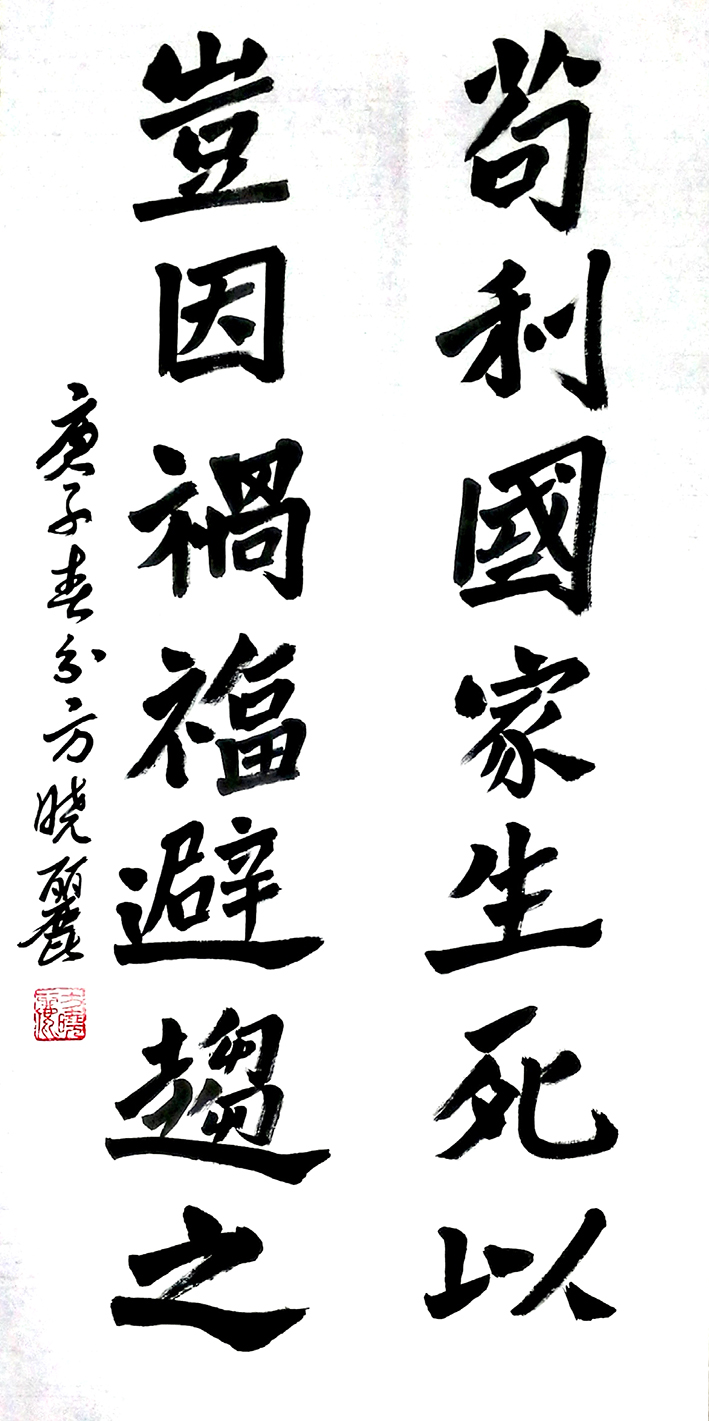 苟利國家生死以
豈因禍福避趨之
庚子春分方晓麗